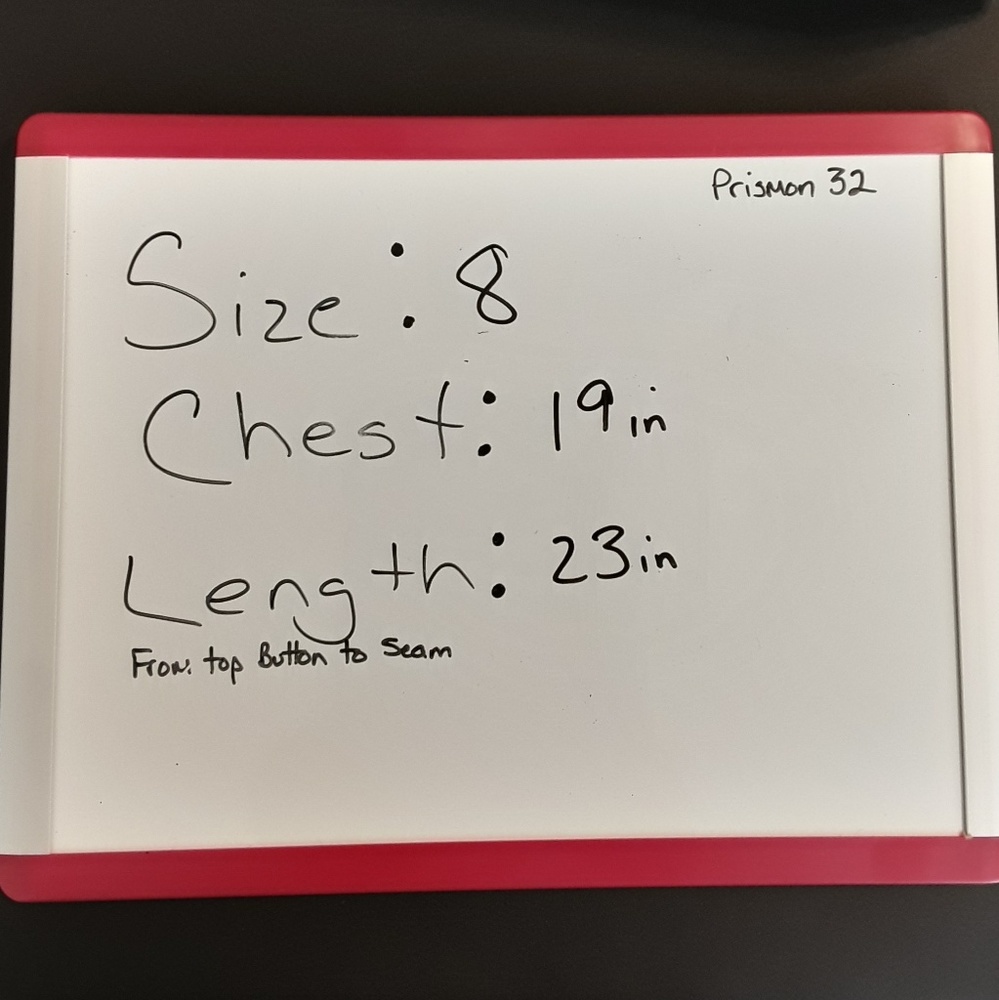 Prismon 32
Size: 8
Chest: 19in
Length: 23in
From top Button to Seam